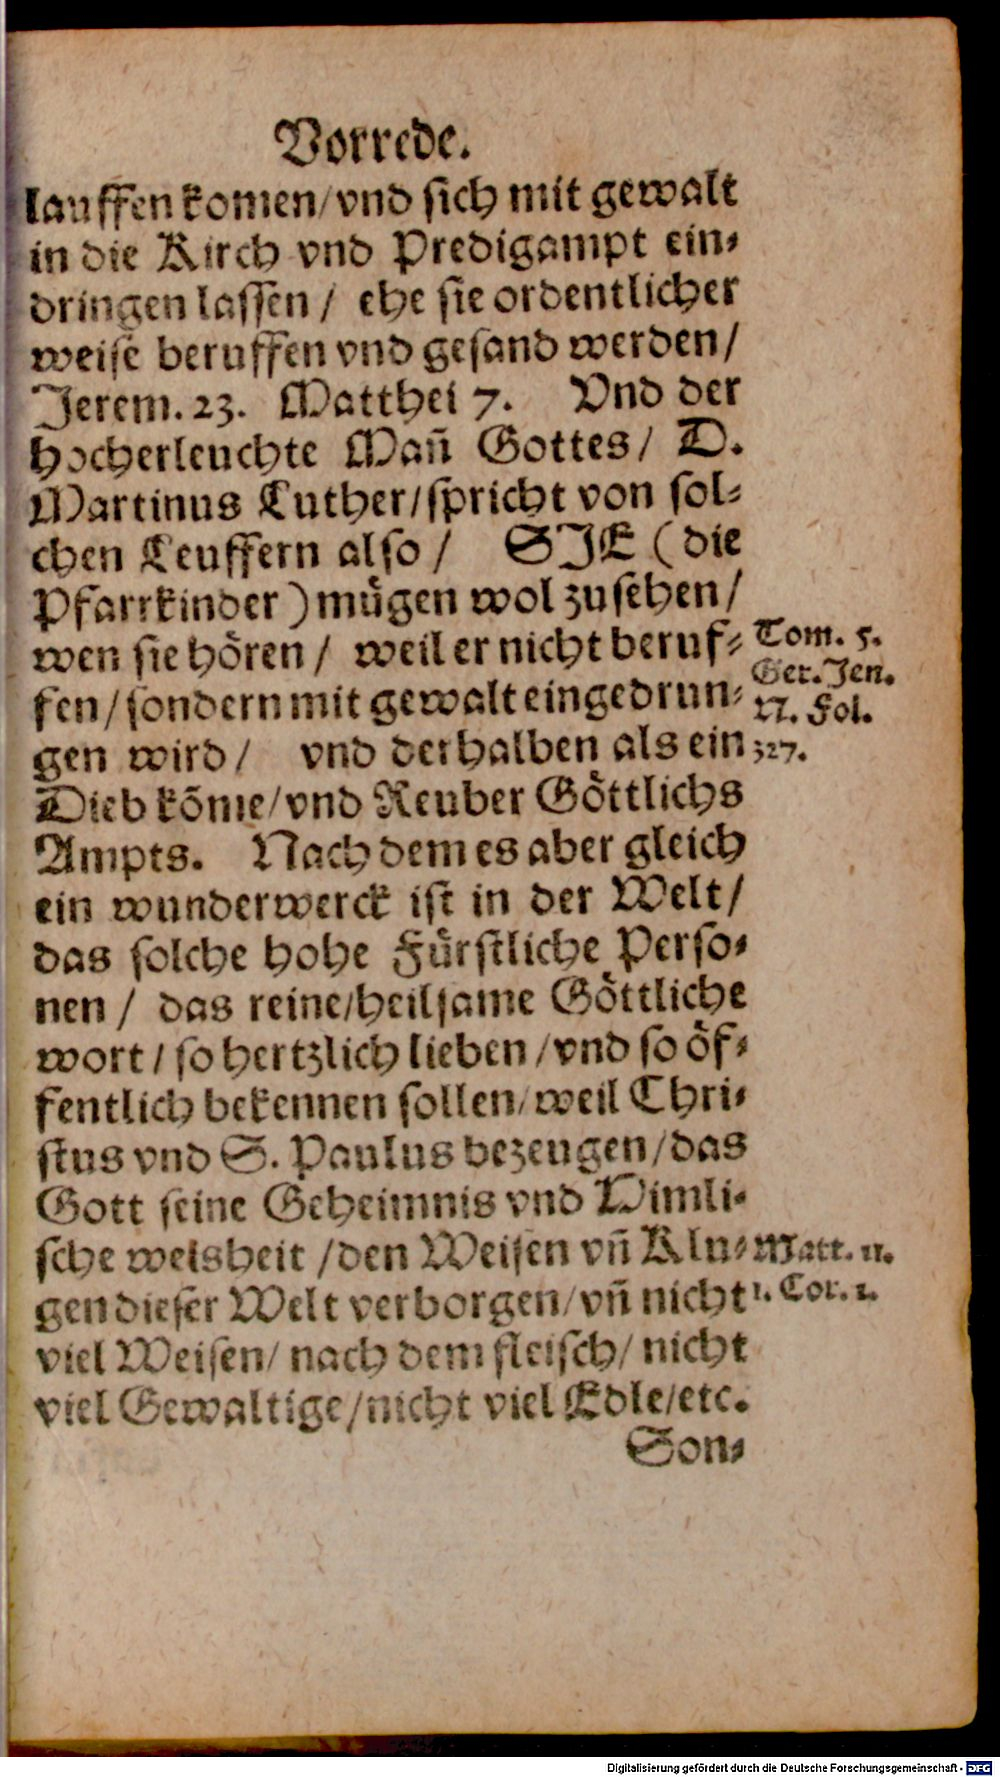 Vorrede.
lauffen komen/vnd sich mit gewalt
in die Kirch vnd Predigampt ein-
dringen lassen/ ehe sie ordentlicher
weise beruffen vnd gesand werden/
Jerem. 23. Matthei 7. Vnd der
hocherleuchte Man̄ Gottes/ D.
Martinus Luther/spricht von sol-
chen Leuffern also/ SJE (die
Pfarrkinder) mügen wol zusehen/
wen sie hören/ weil er nicht beruf-
fen/sondern mit gewalt eingedrun-
gen wird/ vnd derhalben als ein
Dieb kōme/vnd Reuber Göttlichs
Ampts. Nach dem es aber gleich
ein wunderwerck ist in der Welt/
das solche hohe Fürstliche Perso-
nen/ das reine/heilsame Göttliche
wort/so hertzlich lieben/vnd so öf-
fentlich bekennen sollen/weil Chri-
stus vnd S. Paulus bezeugen/das
Gott seine Geheimnis vnd Himli-
sche weisheit/den Weisen vn̄ Klu-
gen dieser Welt verborgen/vn̄ nicht
viel Weisen/ nach dem fleisch/ nicht
viel Gewaltige/nicht viel Edle/etc.
Son-
Tom. 5.
Ger. Jen.
N. Fol.
327.
Matt. 11.
1. Cor. 1.
Digitalisierung gefördert durch die Deutsche Forschungsgemeinschaft - DFG